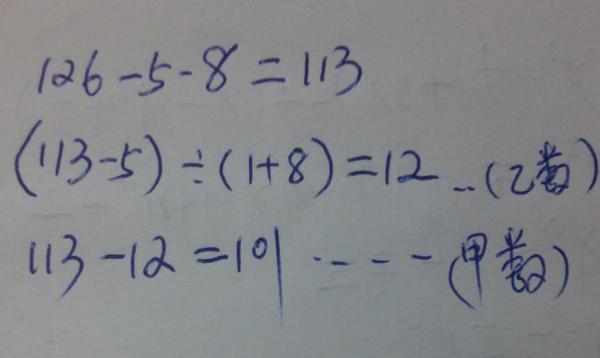 126-5-8=113
(113-5)÷(1+8)=12..(乙数)
113-12=101----(甲数)